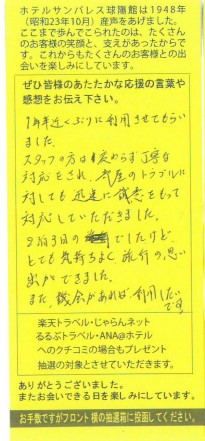 ホテルサンパレス球陽館は1948年
(昭和23年10月)産声をあげました。
ここまで歩んでこられたのは、たくさん
のお客様の笑顔と、支えがあったからで
す。これからもたくさんのお客様との出
会いを楽しみにしています。
ぜひ皆様のあたたかな応援の言葉や
感想をお伝え下さい。
1年半近くぶりに利用させてもらい
ました。
スタッフの方は変わらず丁寧な
対応をされ、部屋のトラブルに
対しても迅速に誠意をもって
対応していただきました。
2泊3日の でしたけど、
とても気持ちよく旅行の思い
出ができました。
また、機会があれば利用したい
です。
楽天トラベル・じゃらんネット
るるぶトラベル・ANA@ホテル
へのクチコミの場合もプレゼント
抽選の対象とさせていただきます。
ありがとうございました。
またお会いできる日を楽しみにしています。
お手数ですがフロント様の抽選箱に投函してください。